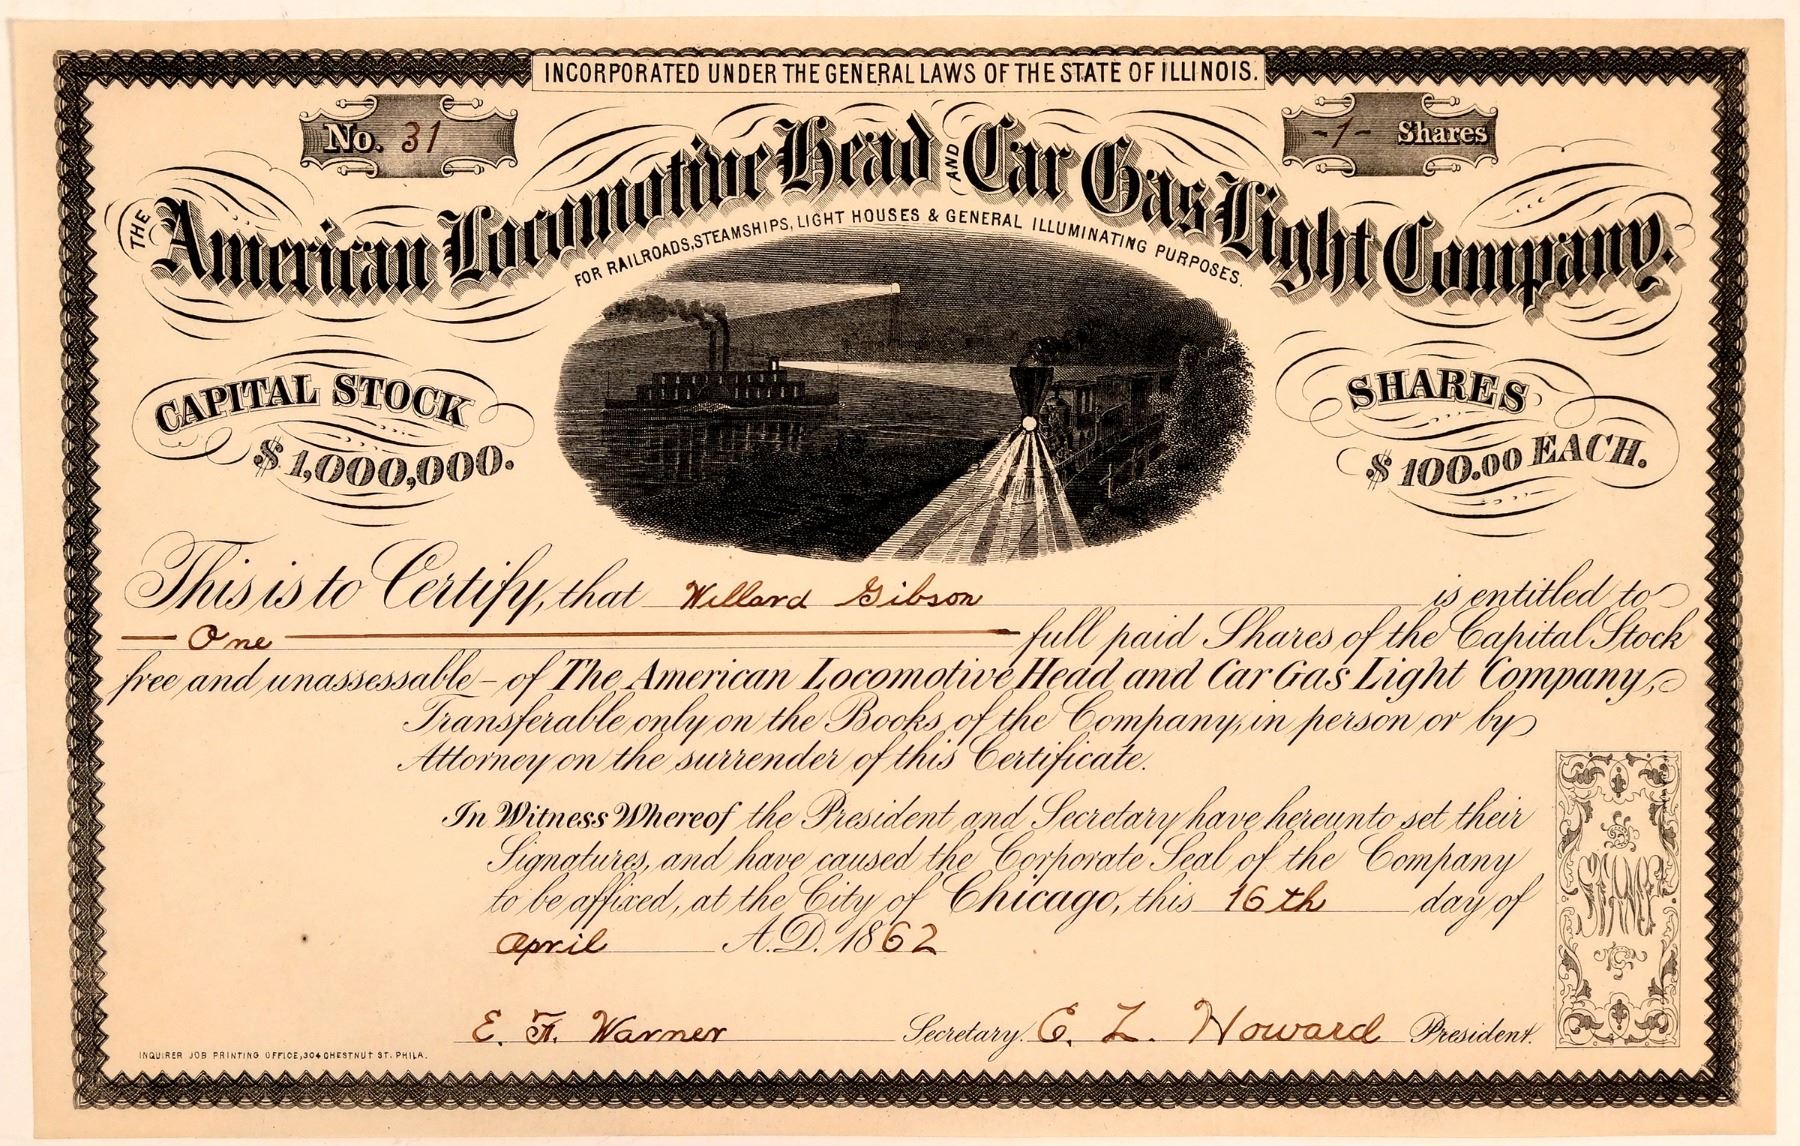 INCORPORATED UNDER THE GENERAL LAWS OF THE STATE OF ILLINOIS.
No. 31
-1- Shares
THE American Locomotive Head AND Car Gas Light Company.
FOR RAILROADS, STEAMSHIPS, LIGHT HOUSES & GENERAL ILLUMINATING PURPOSES.
CAPITAL STOCK
$1,000,000.
SHARES
$100.00 EACH.
This is to Certify, that Willard Gibson is entitled to
One full paid Shares of the Capital Stock
free and unassessable - of The American Locomotive Head and Car Gas Light Company,
Transferable only on the Books of the Company, in person or by
Attorney on the surrender of this Certificate.
In Witness Whereof the President and Secretary have hereunto set their
Signatures, and have caused the Corporate Seal of the Company
to be affixed, at the City of Chicago, this 16th day of
April A.D. 1862
E. F. Warner Secretary. E. L. Howard President.
INQUIRER JOB PRINTING OFFICE, 304 CHESTNUT ST. PHILA.